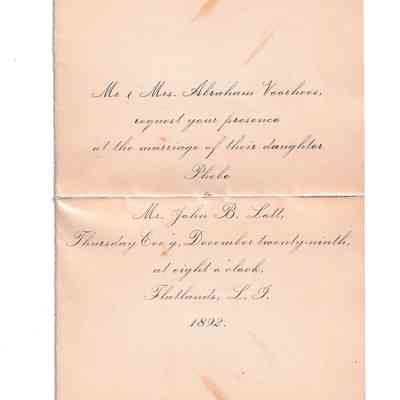 Mr & Mrs. Abraham Voorhees,
request your presence
at the marriage of their daughter
Phebe
to
Mr. John B. Lott,
Thursday Eve'g, December twenty-ninth,
at eight o'clock,
Flatlands, L. I.
1892.